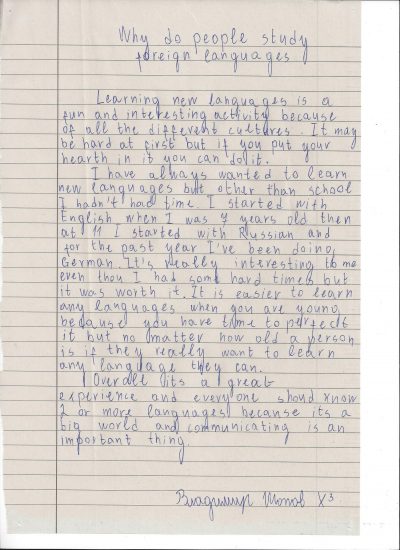 Why do people study
foreign languages
Learning new languages is a
fun and interesting activity because
of all the different cultures. It may
be hard at first but if you put your
hearth in it you can do it.
I have always wanted to learn
new languages but other than school
I hadn't had time. I started with
English when I was 7 years old then
at 11 I started with Russian and
for the past year I've been doing
German. It's really interesting to me
even thou I had some hard times but
it was worth it. It is easier to learn
any languages when you are young
because you have time to perfect
it but no matter how old a person
is if they really want to learn
any language they can.
Overall its a great
experience and every one should know
2 or more languages because its a
big world and communicating is an
important thing.
Владимир X³